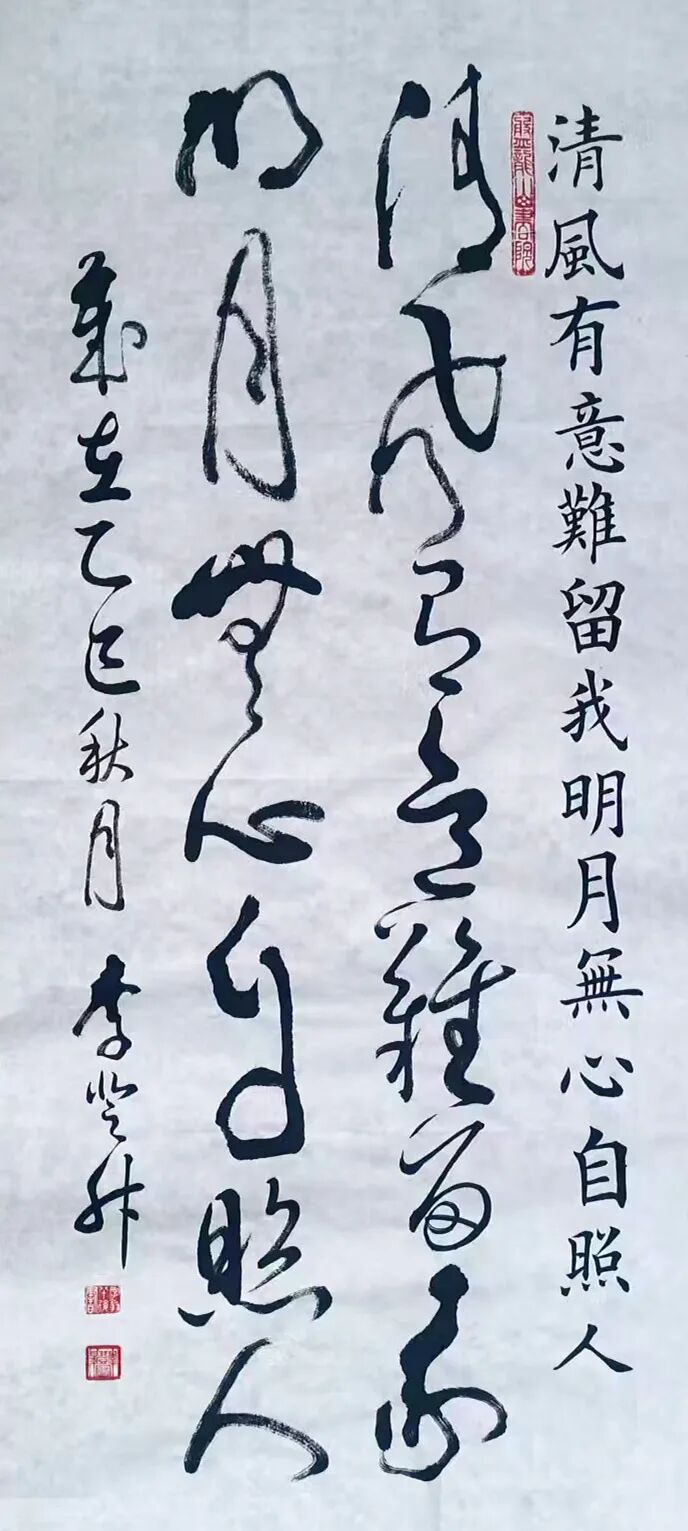 清風有意難留我明月無心自照人
清風有意難留我
明月無心自照人
歲在乙巳秋月 李登升